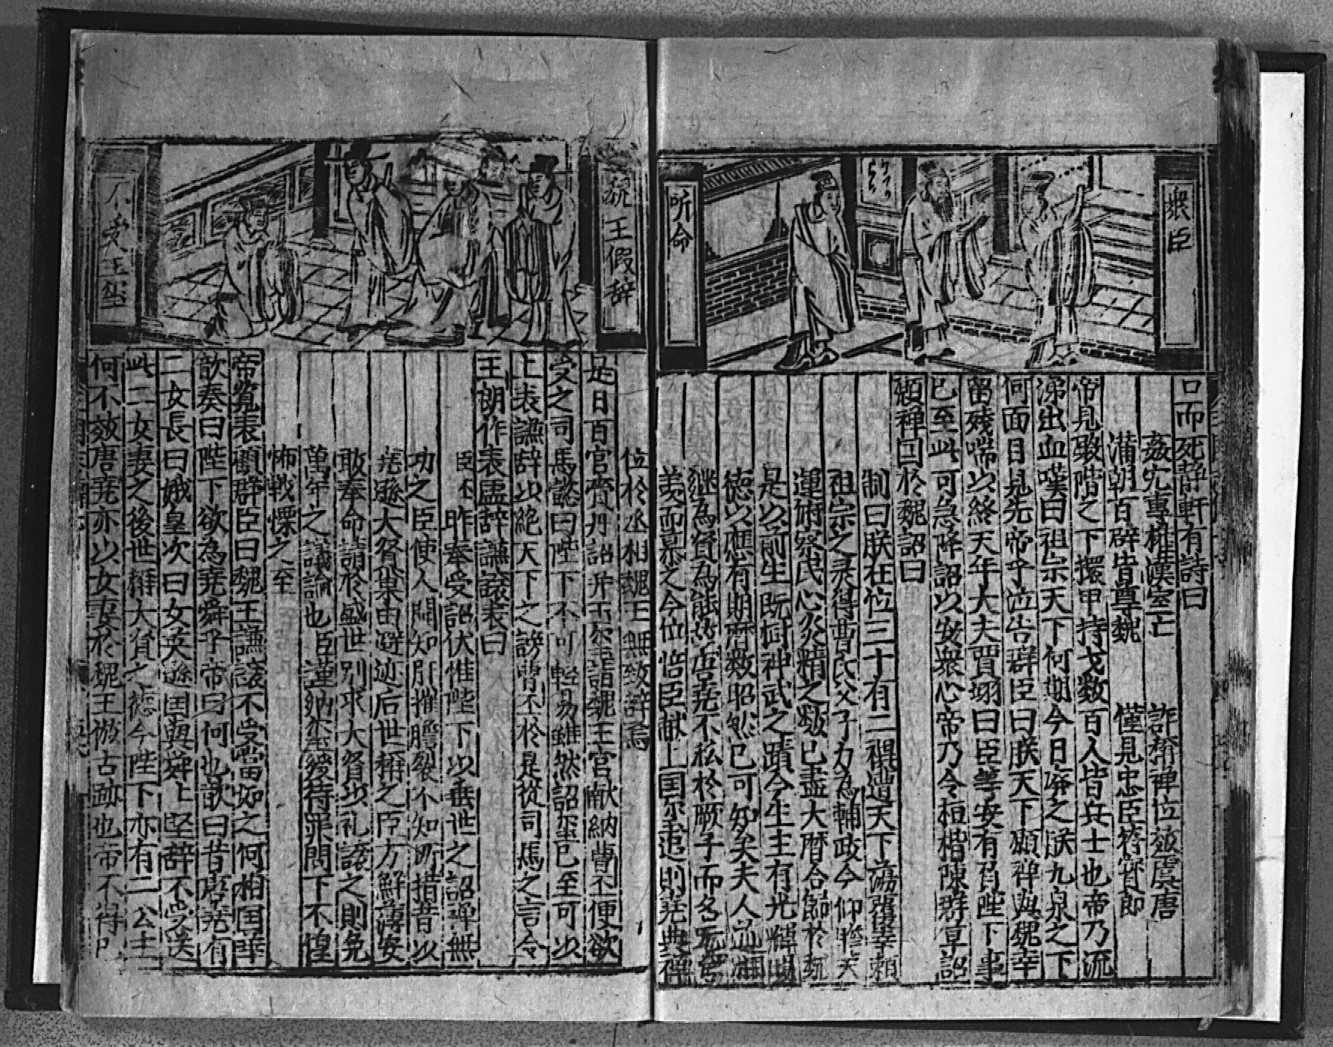 衆臣
听命
口而死靜軒有詩曰
姦宄專權漢室亡 詐稱禪位效虞唐
滿朝百辟皆尊魏 僅見忠臣符寶郎
帝見殿階之下擐甲持戈数百人皆兵士也帝乃流
涕出血嘆曰祖宗天下何期今日廢之朕九泉之下
何面目見先帝乎泣告群臣曰朕天下願禅與魏幸
留殘喘以終天年大夫賈翊曰臣等安有負陛下事
已至此可急降詔以安衆心帝乃令桓楷陳群草詔
願禅囯於魏詔曰
制曰朕在位三十有二禩遭天下蕩覆幸賴
祖宗之灵得曹氏父子力為輔政今仰瞻天
運術察民心炎精之数已盡大曆合歸於魏
是以前生既樹神武之蹟今生主有光輝明
德以應有期曆数昭然已可知矣夫人道
継為賢為能故唐堯不私於厥子而名
羙而慕之今位悟臣献上国亦追則尭典禅
魏王假辞
不受玉玺
位於丞相魏王無致辞焉
是日百官齊捧詔并玉玺詣魏王宫献納曹丕便欲
受之司馬懿曰陛下不可輕易雖然詔玺已至可以
上表謙辞以絶天下之謗曹丕於是從司馬之言令
王朗作表虚辞謙譲表曰
臣丕昨奉受詔伏惟陛下以垂世之詔禅無
功之臣使人聞知肝摧膽裂不知所措昔以
堯遜大賢巢由避迹后世稱之臣才鮮薄安
敢奉命請於盛世别求大賢以礼譲之則免
萬年之議論也臣謹納玺綬待罪闕下不惶
怖戰慄之至
帝覧表顧群臣曰魏王謙譲不受當如之何相国華
歆奏曰陛下欲為堯舜乎帝曰何也歆曰昔唐堯有
二女長曰娥皇次曰女英遜国與舜上坚辞不受送
此二女妻之後世稱大賢之德今陛下亦有二公主
何不效唐堯亦以女妻於魏王倣古跡也帝不得已